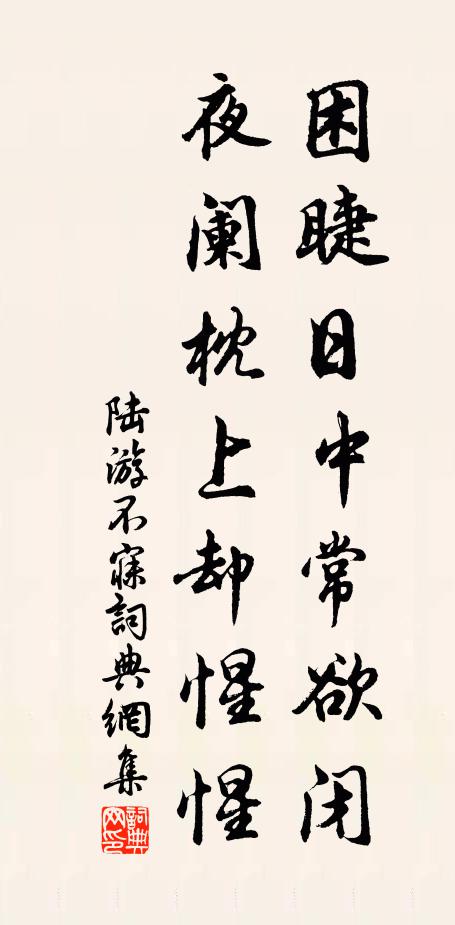 困睫日中常欲闭
夜阑枕上却惺惺
陆游不寐詞典網集
詞典网印